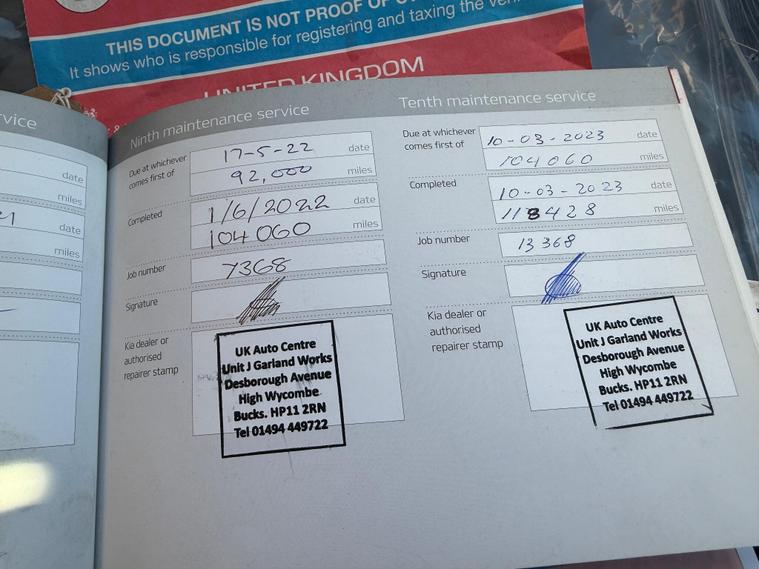 THIS DOCUMENT IS NOT PROOF OF
It shows who is responsible for registering and taxing the
UNITED KINGDOM
Ninth maintenance service
Due at whichever comes first of
17-5-22 date
92,000 miles
Completed
1/6/2022 date
104060 miles
Job number
7368
Signature
Kia dealer or
authorised
repairer stamp
UK Auto Centre
Unit J Garland Works
Desborough Avenue
High Wycombe
Bucks. HP11 2RN
Tel 01494 449722
Tenth maintenance service
Due at whichever comes first of
10-03-2023 date
104060 miles
Completed
10-03-2023 date
118428 miles
Job number
13368
Signature
Kia dealer or
authorised
repairer stamp
UK Auto Centre
Unit J Garland Works
Desborough Avenue
High Wycombe
Bucks. HP11 2RN
Tel 01494 449722
date
miles
date
miles